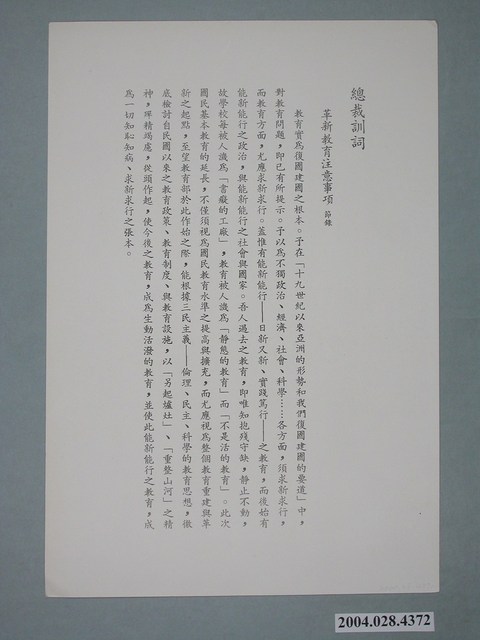 總裁訓詞
革新教育注意事項 節錄
教育實爲復國建國之根本。予在「十九世紀以來亞洲的形勢和我們復國建國的要道」中，
對教育問題，即已有所提示。予以爲不獨政治、經濟、社會、科學……各方面，須求新求行，
而教育方面，尤應求新求行。蓋惟有能新能行——日新又新、實踐篤行——之教育，而後始有
能新能行之政治，與能新能行之社會與國家。吾人過去之教育，即唯知抱殘守缺，靜止不動，
故學校每被人譏爲「書癡的工廠」，教育被人譏爲「靜態的教育」而「不是活的教育」。此次
國民基本教育的延長，不僅須視爲國民教育水準之提高與擴充，而尤應視爲整個教育重建與革
新之起點，至望教育部於此作始之際，能根據三民主義——倫理、民主、科學的教育思想，徹
底檢討自民國以來之教育政策、教育制度、與教育設施，以「另起爐灶」、「重整山河」之精
神，殫精竭慮，從頭作起，使今後之教育，成爲生動活潑的教育，並使此能新能行之教育，成
爲一切知恥知病、求新求行之張本。
2004.028.4372